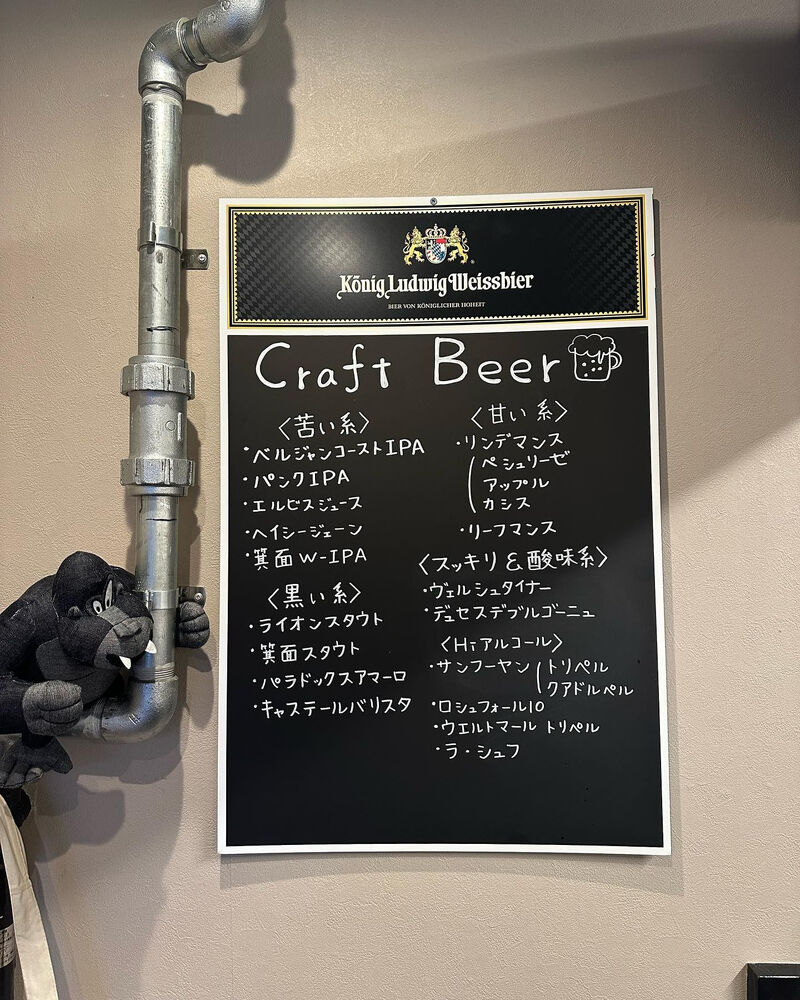 König Ludwig Weissbier
BIER VON KÖNIGLICHER HOHEIT
Craft Beer
〈苦い系〉
・ベルジャンコーストIPA
・パンクIPA
・エルビスジュース
・ヘイシージェーン
・箕面W-IPA
〈黒い系〉
・ライオンスタウト
・箕面スタウト
・パラドックスアマーロ
・キャステールバリスタ
〈甘い系〉
・リンデマンス
ペシュリーゼ
アップル
カシス
・リーフマンス
〈スッキリ&酸味系〉
・ヴェルシュタイナー
・デュセスデブルゴーニュ
〈Hiアルコール〉
・サンフーヤン(トリペル
クアドルペル
・ロシュフォール10
・ウエルトマール トリペル
・ラ・シュフ